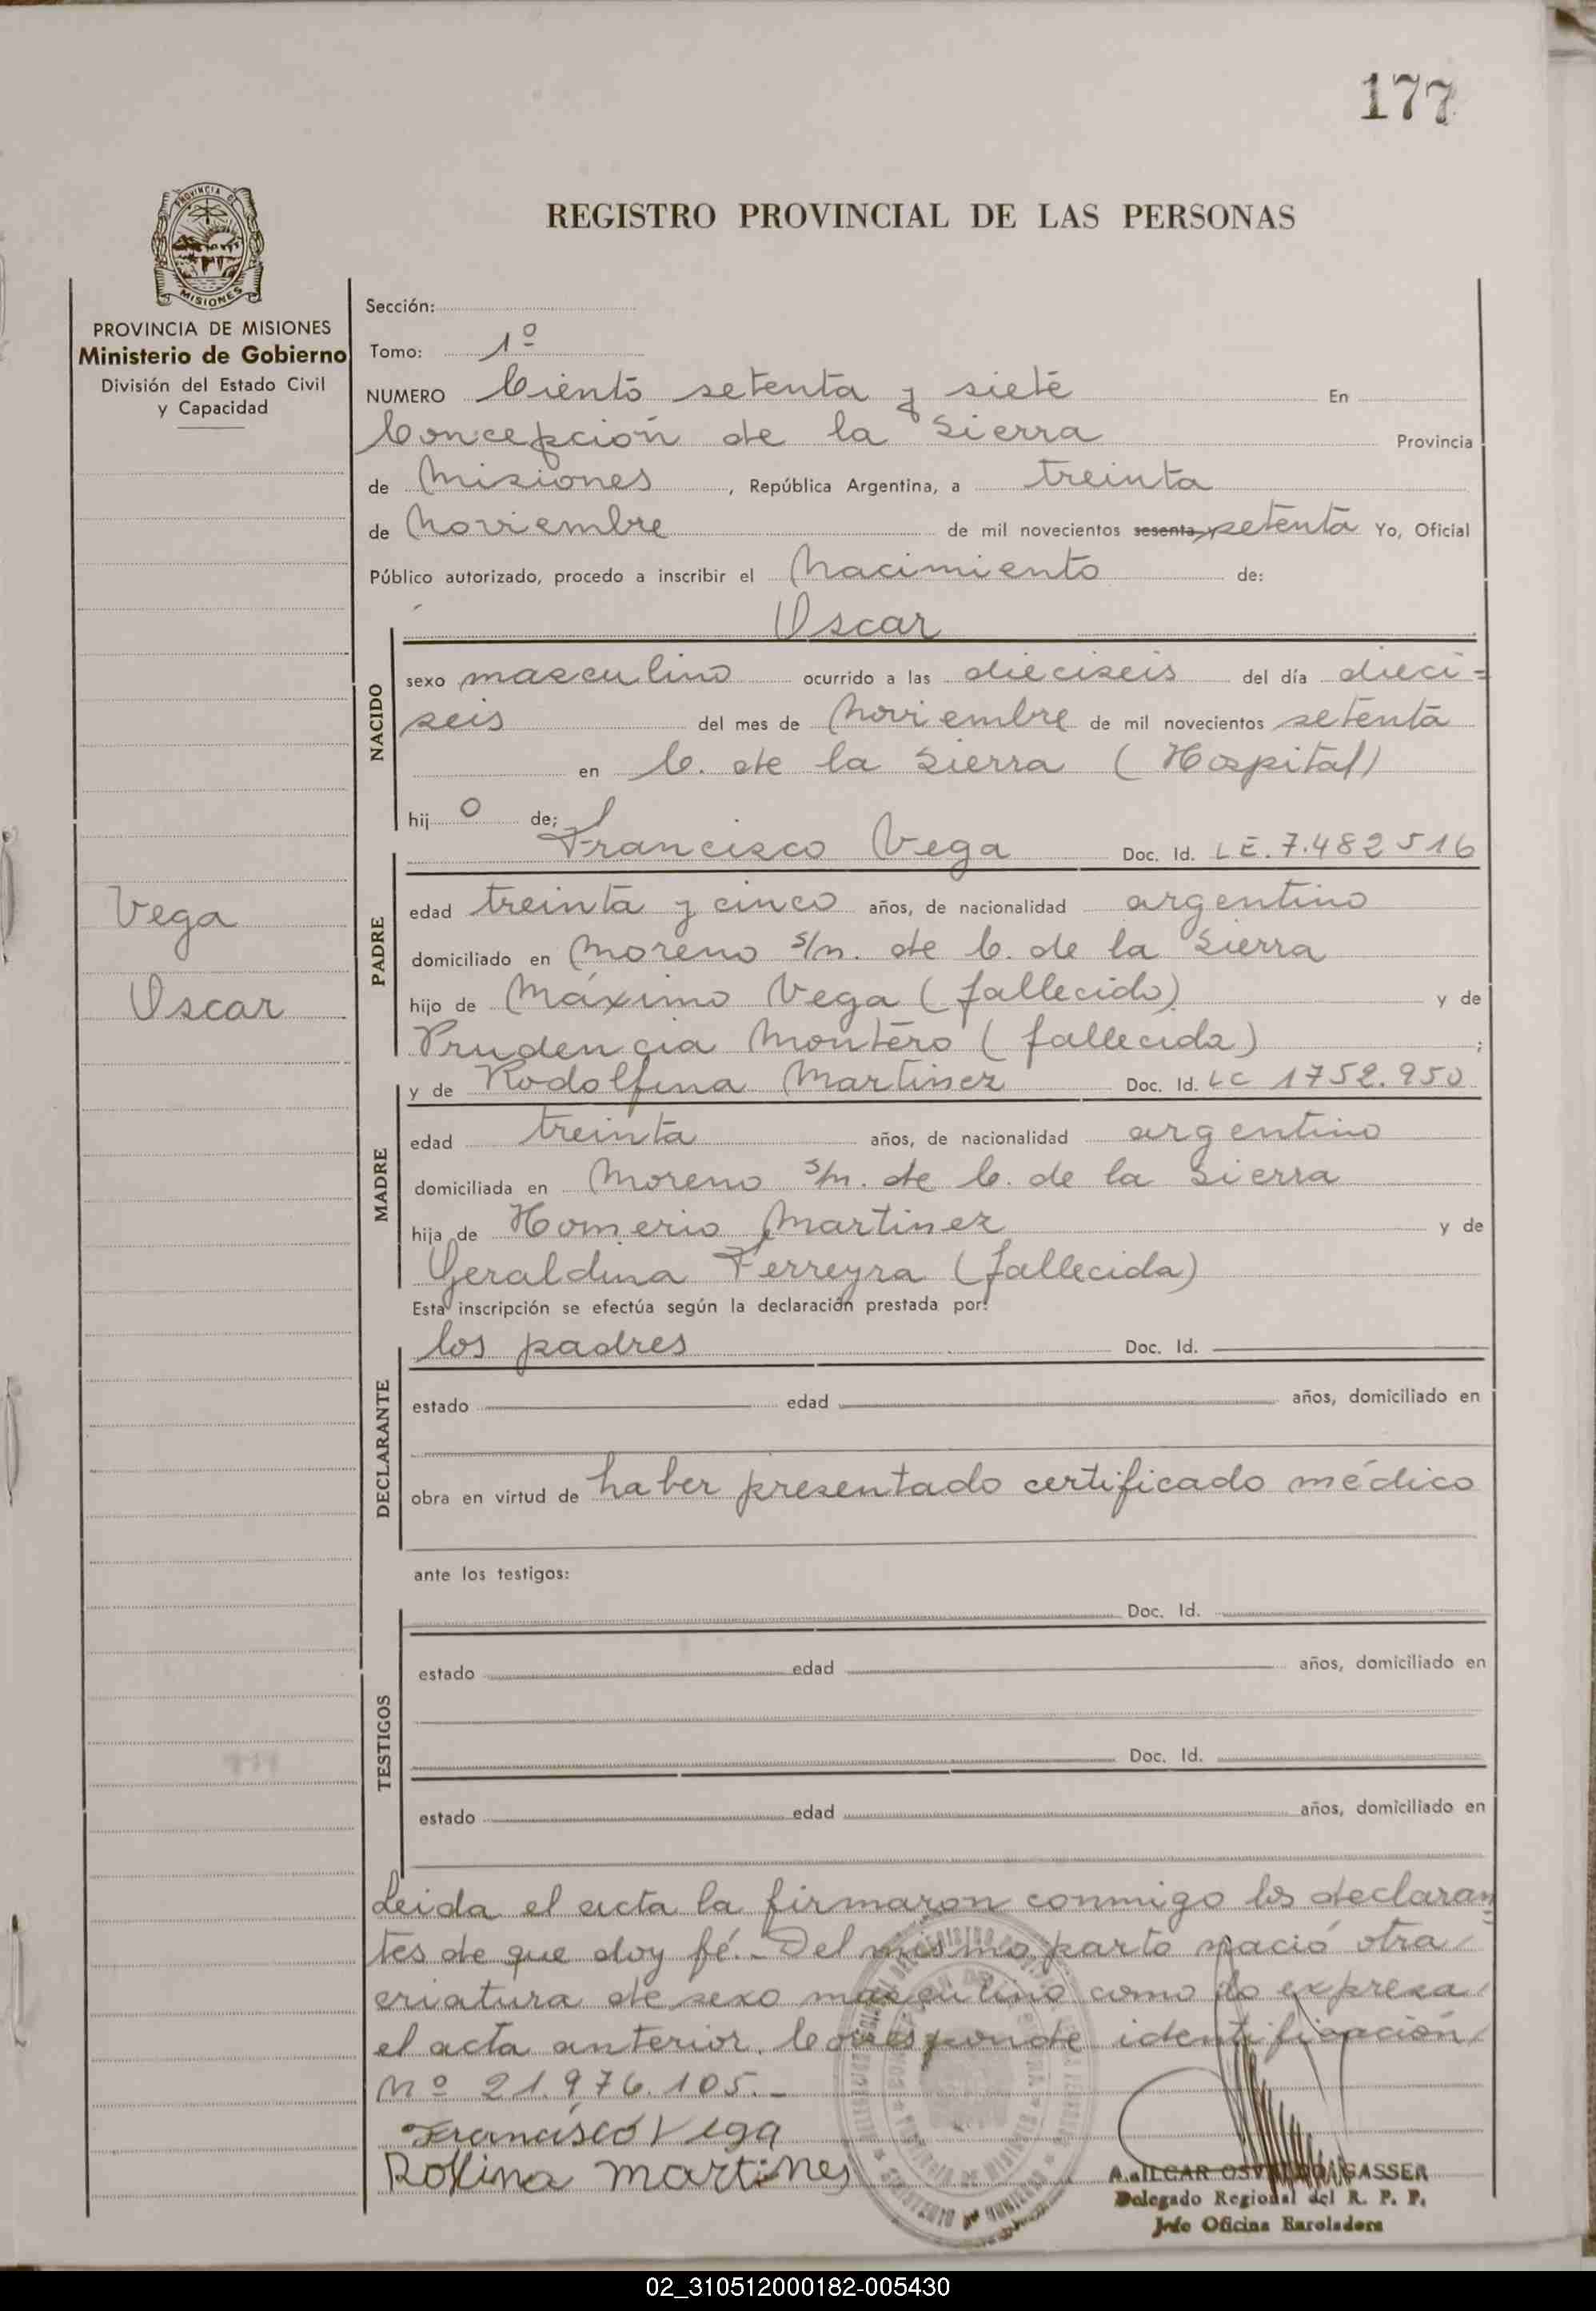 177
REGISTRO PROVINCIAL DE LAS PERSONAS
PROVINCIA DE MISIONES
Ministerio de Gobierno
División del Estado Civil
y Capacidad
Vega
Oscar
Sección:
Tomo: 1º
NUMERO Ciento setenta y siete En
Concepción de la Sierra Provincia
de Misiones, República Argentina, a treinta
de Noviembre de mil novecientos sesenta y setenta Yo, Oficial
Público autorizado, procedo a inscribir el Nacimiento de:
Oscar
NACIDO
sexo masculino ocurrido a las dieciseis del día dieci=
seis del mes de Noviembre de mil novecientos setenta
en C. de la Sierra (Hospital)
hijo de:
PADRE
Francisco Vega Doc. Id. LE. 7.482516
edad treinta y cinco años, de nacionalidad argentino
domiciliado en Moreno s/n. de C. de la Sierra
hijo de Máximo Vega (fallecido) y de
Prudencia Montero (fallecida) ;
MADRE
y de Rodolfina Martinez Doc. Id. LC 1752.950
edad treinta años, de nacionalidad argentino
domiciliada en Moreno s/n. de C. de la Sierra
hija de Homerio Martinez y de
Geraldina Ferreyra (fallecida)
Esta inscripción se efectúa según la declaración prestada por:
DECLARANTE
los padres Doc. Id.
estado edad años, domiciliado en
obra en virtud de haber presentado certificado médico
ante los testigos:
TESTIGOS
Doc. Id.
estado edad años, domiciliado en
Doc. Id.
estado edad años, domiciliado en
Leida el acta la firmaron conmigo los declaran=
tes de que doy fé.- Del mismo parto nació otra
criatura de sexo masculino como lo expresa
el acta anterior. Corresponde identificación
Nº 21.976.105.-
Francisco Vega
Martines
GASSER
Delegado Regional del R. P. P.
Jefe Oficina Enroladora
02_310512000182-005430